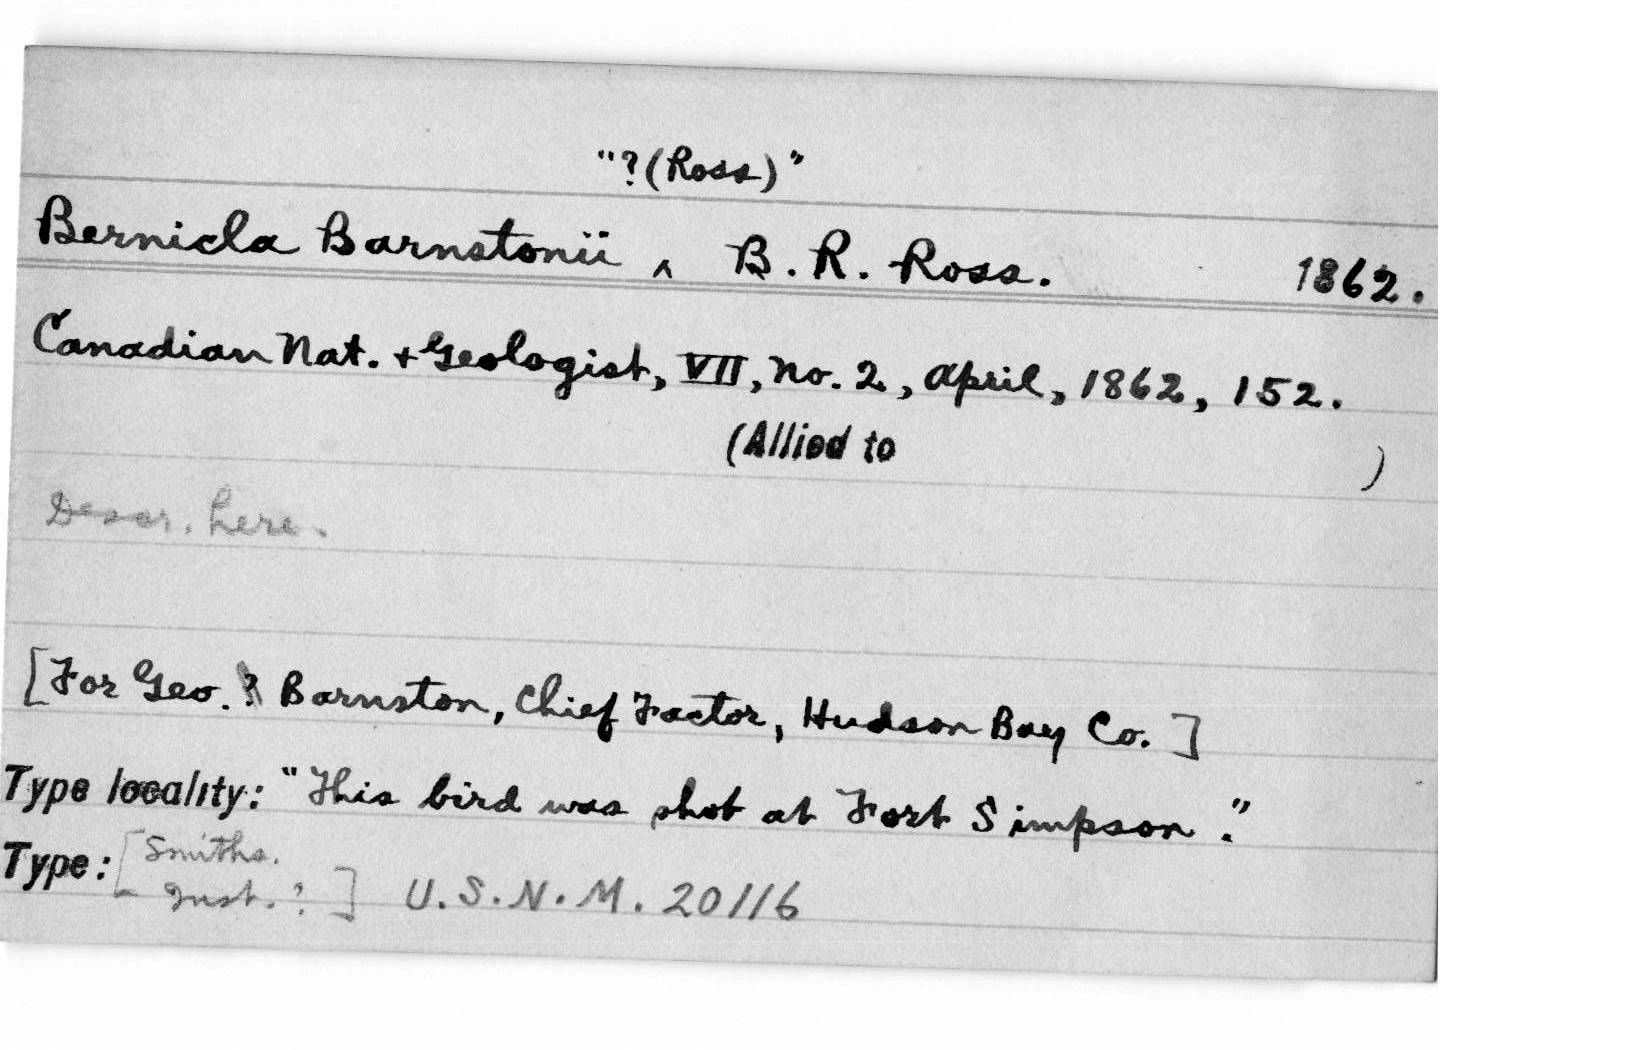 "?(Ross)"
Bernicla Barnstonii ^ B. R. Ross. 1862.
Canadian Nat. + Geologist, VII, No. 2, April, 1862, 152.
(Allied to )
Descr. here.
[For Geo. ? Barnston, Chief Factor, Hudson Bay Co.]
Type locality: "This bird was shot at Fort Simpson."
Type: [Smiths.
Inst. ?] U.S.N.M. 20116